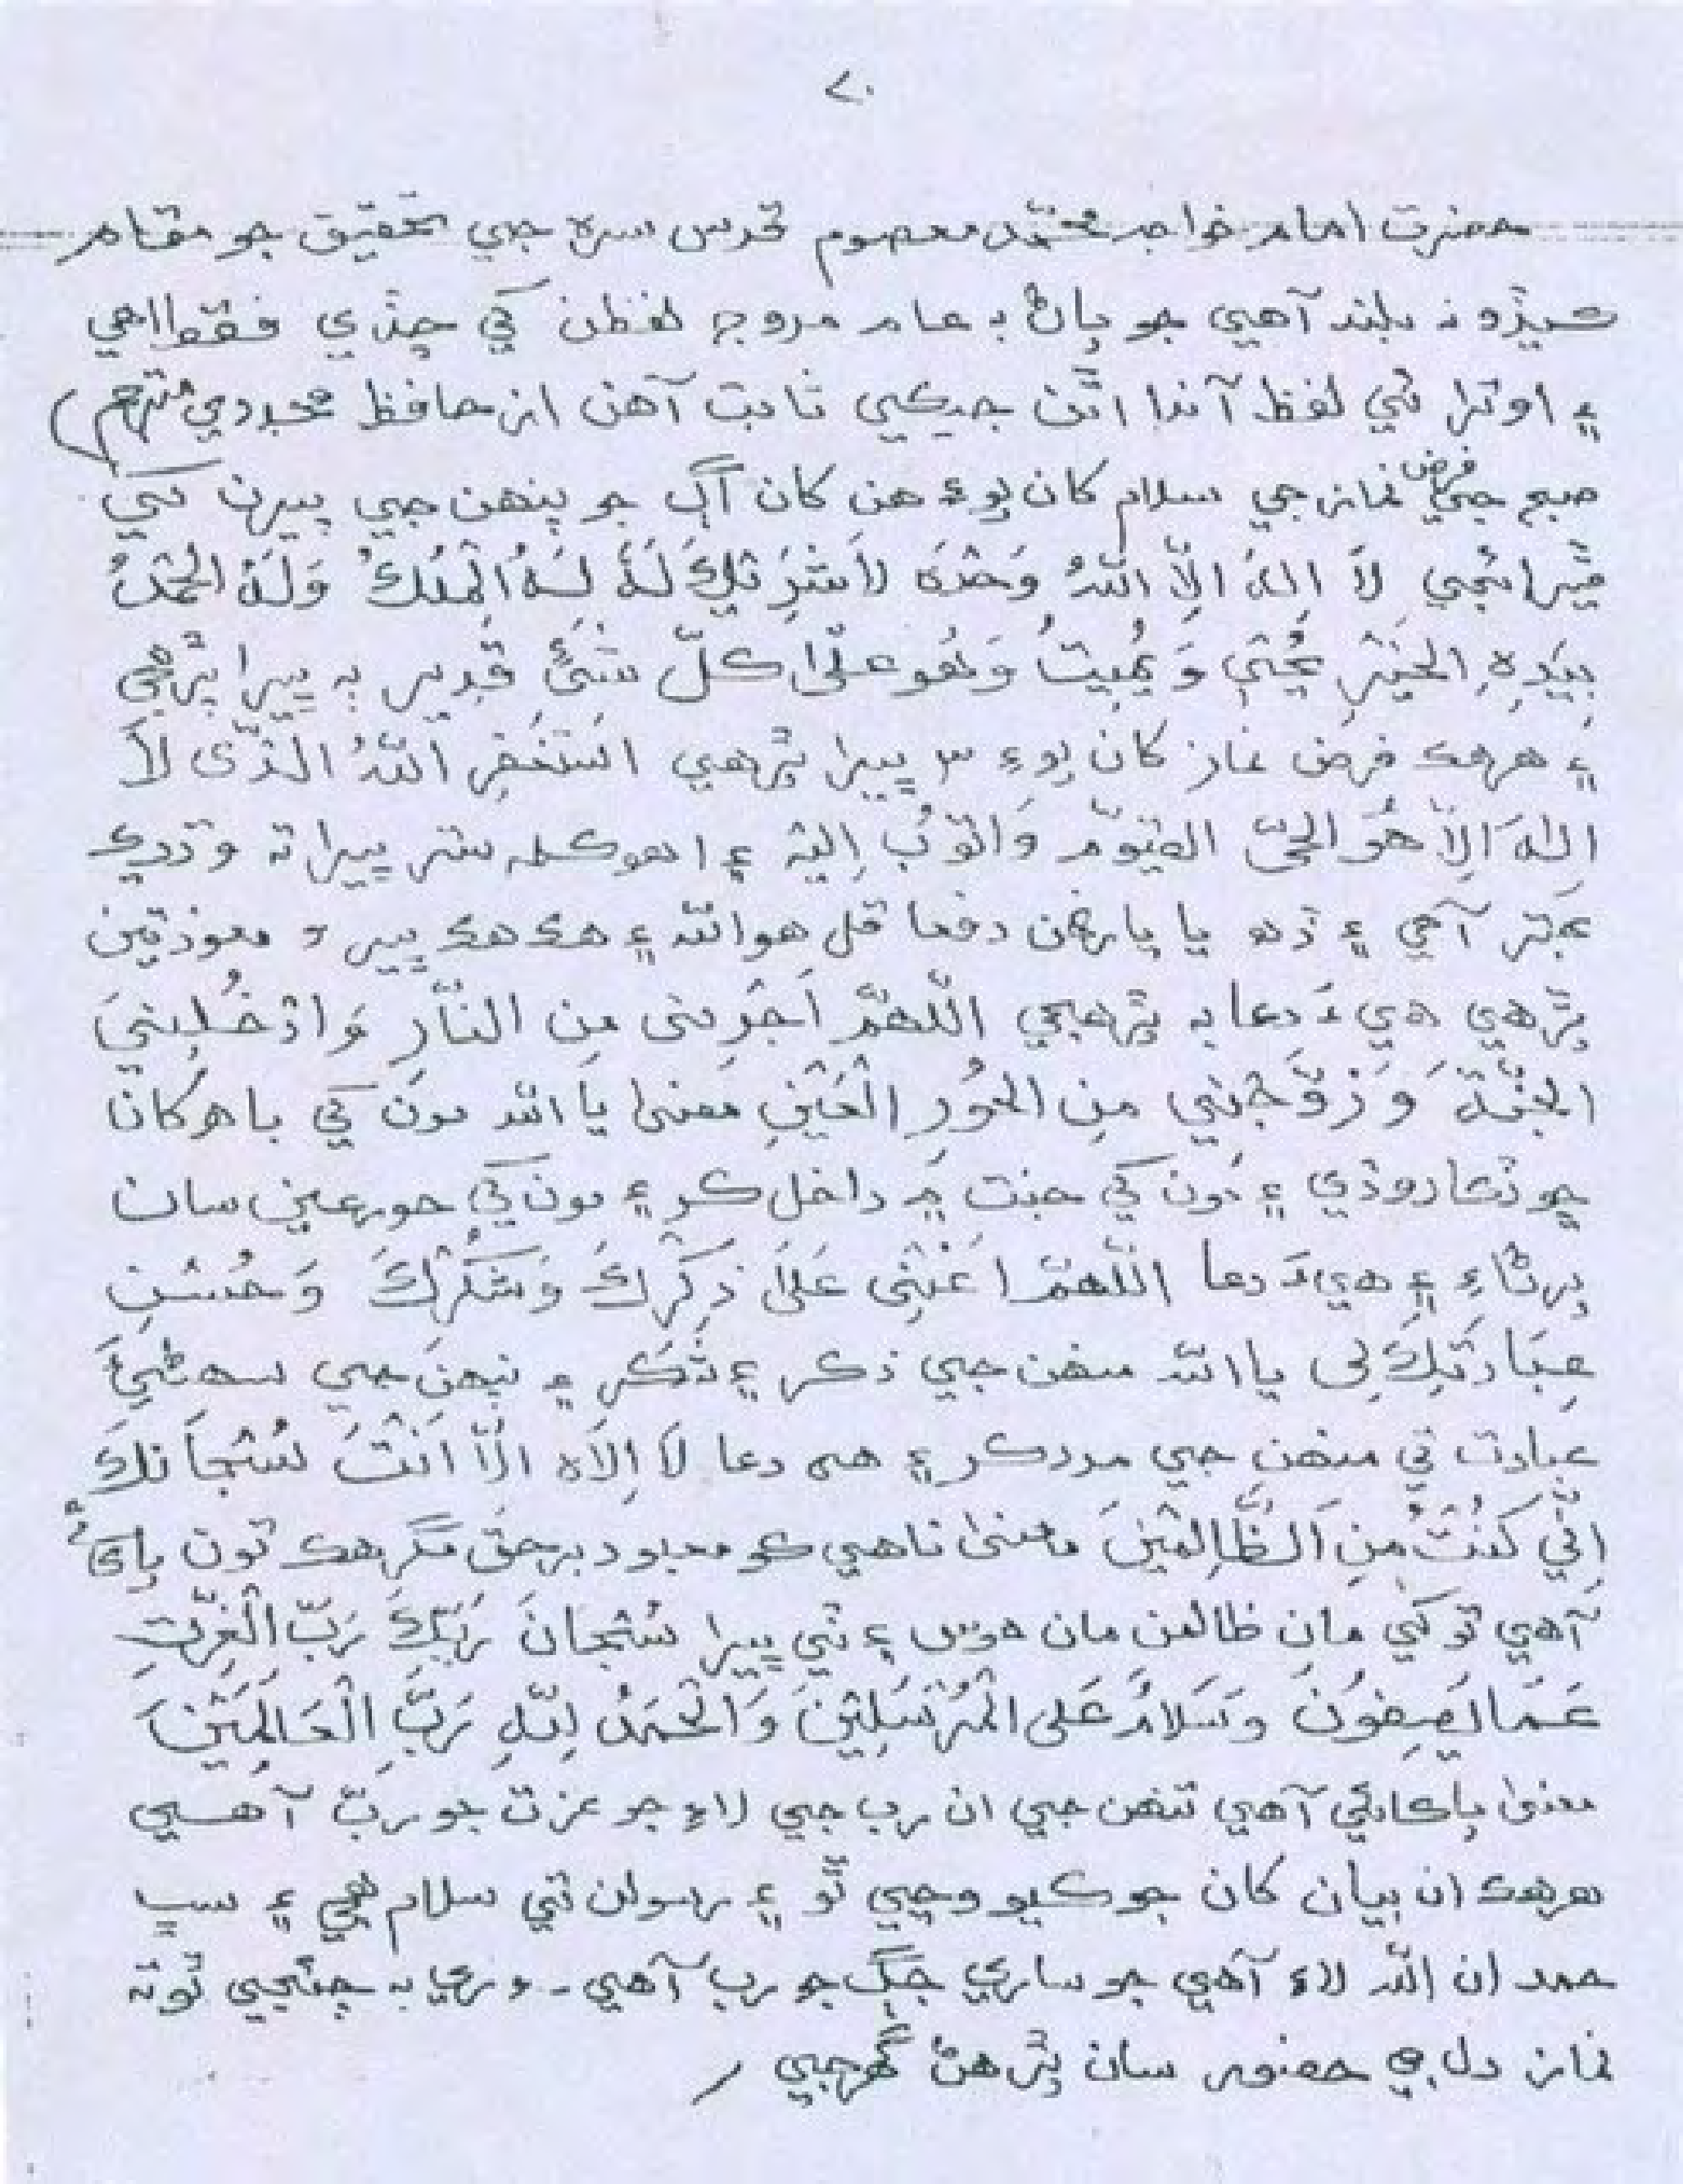 ٢٠
حضرت امام خواجہ محمّد معصوم قدس سره جي تحقيق جو مقام
ڪيڏو نہ بلند آهي جو پاڻ بہ عام مروج لفظن کي ڇڏي فقط اهي
۽ اوترا ئي لفظ آندا اٿن جيڪي ثابت آهن از حافظ مجددي مترجم)
صبح جي فرض نماز جي سلام کان پوء هن کان اڳ جو پنهن جي پيرن کي
ڦيرائجي لَا اِلٰهَ اِلَّا اللّٰهُ وَحْدَهٗ لَاشَرِيْكَ لَهٗ لَهُ الْمُلْكُ وَلَهُ الْحَمْدُ
بِيَدِهِ الخَيْرِ يُحْيِي وَ يُمِيتُ وَهُو عليٰ ڪلّ شَيْءٍ قدير بہ پيرا پڙهجي
۽ هر هڪ فرض نماز کان پوءِ ٣ پيرا پڙهي اسْتَغْفِر اللّٰهُ الَّذِى لاَ
اِلٰهَ اِلَّا هُوَ الحَىّ القيّوم وَاتُوْبُ اِليْہ ۽ اهو ڪلمہ ستر پيرا تہ وڌيڪ
بهتر آهي ۽ ڏه يا يارهن دفعا قل هو الله ۽ هڪ هڪ پير معوذتين
پڙهي هيءَ دعا بہ پڙهجي اللّٰهُمَّ اَجِرْنِى مِن النَّارِ وَادْخُلِنِيَ
الجَنَّةَ وَ زَوِّجْنِي مِن الحُوْرِ الْعَيْنِ معنيٰ يا الله مون کي باهہ کان
ڇوٽڪارو ڏي ۽ مون کي جنت ۾ داخل ڪر ۽ مون کي حور عين سان
پرڻاءِ ۽ هيءَ دعا اللّٰهُمَّ اَعْنِّى عَلَىٰ ذِكْرِكَ وَشُكْرِكَ وَحُسْنِ
عِبَادَتِكَ لِى يا الله منهن جي ذڪر ۽ شڪر ۽ تنهن جي سهڻيءَ
عبادت تي منهن جي مدد ڪر ۽ هي دعا لَا اِلَاہ اِلَّا اَنْتَ سُبْحَانَكَ
اِنِّي كُنْتُ مِنَ الظَّالِمِيْنَ معنيٰ ناهي ڪو معبود برحق مگر هڪ تون پاڪ
آهي تو کي مان ظالمن مان هوس ۽ ٽي پيرا سُبْحَانَ رَبِّكَ رَبِّ الْعِزَّتِ
عَمَّا يَصِفُونَ وَسَلَامٌ عَلى الْمُرْسَلِيْنَ وَالْحَمْدُ لِلّٰهِ رَبِّ الْعَالَمِيْنَ
معنيٰ پاڪائي آهي تنهن جي ان رب جي لاءِ جو عزت جو ربّ آهي
هر هڪ ان بيان کان جو ڪيو وڃي ٿو ۽ رسولن تي سلام هجي ۽ سڀ
حمد ان الله لاءِ آهي جو ساري جڳ جو رب آهي ۔ وري بہ چئجي ٿو تہ
نماز دل جي حضور سان پڙهڻ گهرجي